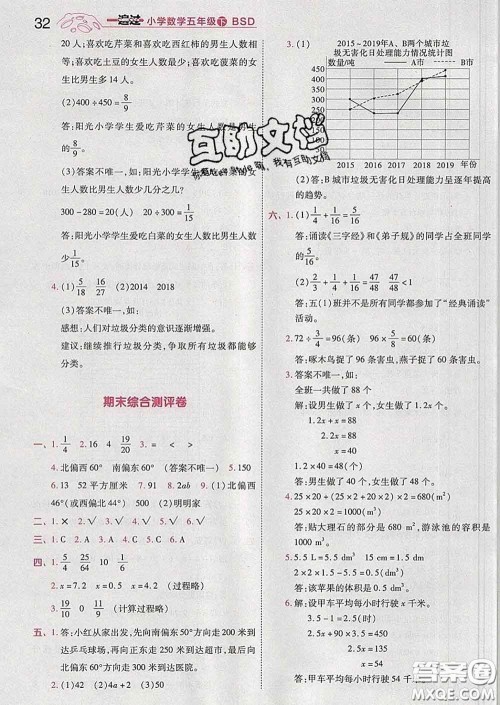 32 一遍过 小学数学五年级 下 BSD
20 人;喜欢吃芹菜和喜欢吃西红柿的男生人数相
等;喜欢吃土豆的女生人数最少;喜欢吃菠菜的女
生比男生多 14 人。
(2)400÷450=8/9
答:阳光小学学生爱吃芹菜的女生人数是男生的
8/9。
(3)答案不唯一,如:阳光小学学生爱吃白菜的男生
人数比女生人数少几分之几?
300-280=20(人) 20÷300=1/15
答:阳光小学学生爱吃白菜的女生人数比男生少
1/15。
4.(1)5/18 16/27 (2)2014 2018
(3)答案不唯一,如:
感想:人们对垃圾分类的意识逐渐增强。
建议:继续推行垃圾分类,争取所有垃圾都能够
分类。
期末综合测评卷
一、1.1/4 2.16 4 19/20 3.= < >
4.北偏西 60° 南偏东 60° (答案不唯一) 5.150
6.13 52 平方厘米 7.6 8.2ab² 9.(1)北偏西
46°(或西偏北 44°) (2)明明家
二、1.√ 2.√ 3.× 4.× 5.√
三、1.C 2.A 3.A 4.C 5.C
四、1.5/4 25/64 10 1/6
2.x=7.2 x=0.5 x=4.2 (过程略)
3.19/10 0 11/9 (计算过程略)
五、1.答:小红从家出发,先向南偏东 50°方向走 200 米到
达乒乓球场,再向东走 300 米到达体育馆,最后向
南偏东 60°方向走 200 米到达医院。
2.(1)42 (2)4a+2 (3)50
3.(1) 2015～2019年A、B两个城市垃
圾无害化日处理能力情况统计图
数量/吨 A市 B市
450
400
350
300
250
200
150
100
50
0 2015 2016 2017 2018 2019 年份
(2)答:B 城市垃圾无害化日处理能力呈逐年提高
的趋势。
六、1.(1)1/4+1/16=5/16
答:诵读《三字经》和《弟子规》的同学占全班同学
的5/16。
(2)1/4+5/12+5/16=47/48 47/48<1
答:五(1)班并不是所有同学都参加了“经典诵读”
活动。
2.72÷3/4=96(条) 96×5/8=60(条)
答:啄木鸟捉了 96 条害虫,燕子捉了 60 条害虫。
3.答案不唯一,如:
全班一共做了 88 个
解:设男生做了 x 个,则女生做了 1.2x 个。
1.2x+x=88
2.2x=88
x=40
1.2×40=48(个)
答:男生做了 40 个,女生做了 48 个。
4.25×20+(25×2+20×2)×2=680(m²)
25×20×2=1000(m³)
答:贴大理石的部分是 680 m²,游泳池的容积是
1000 m³。
5.5.5 L=5.5 dm³
5.5-5=0.5(dm³)
答:该苹果的体积是 0.5 dm³。
6.解:设甲车平均每小时行驶 x 千米。
答:甲车平均每小时行驶 54 千米。
互助文档
答案圈
MXQE.COM